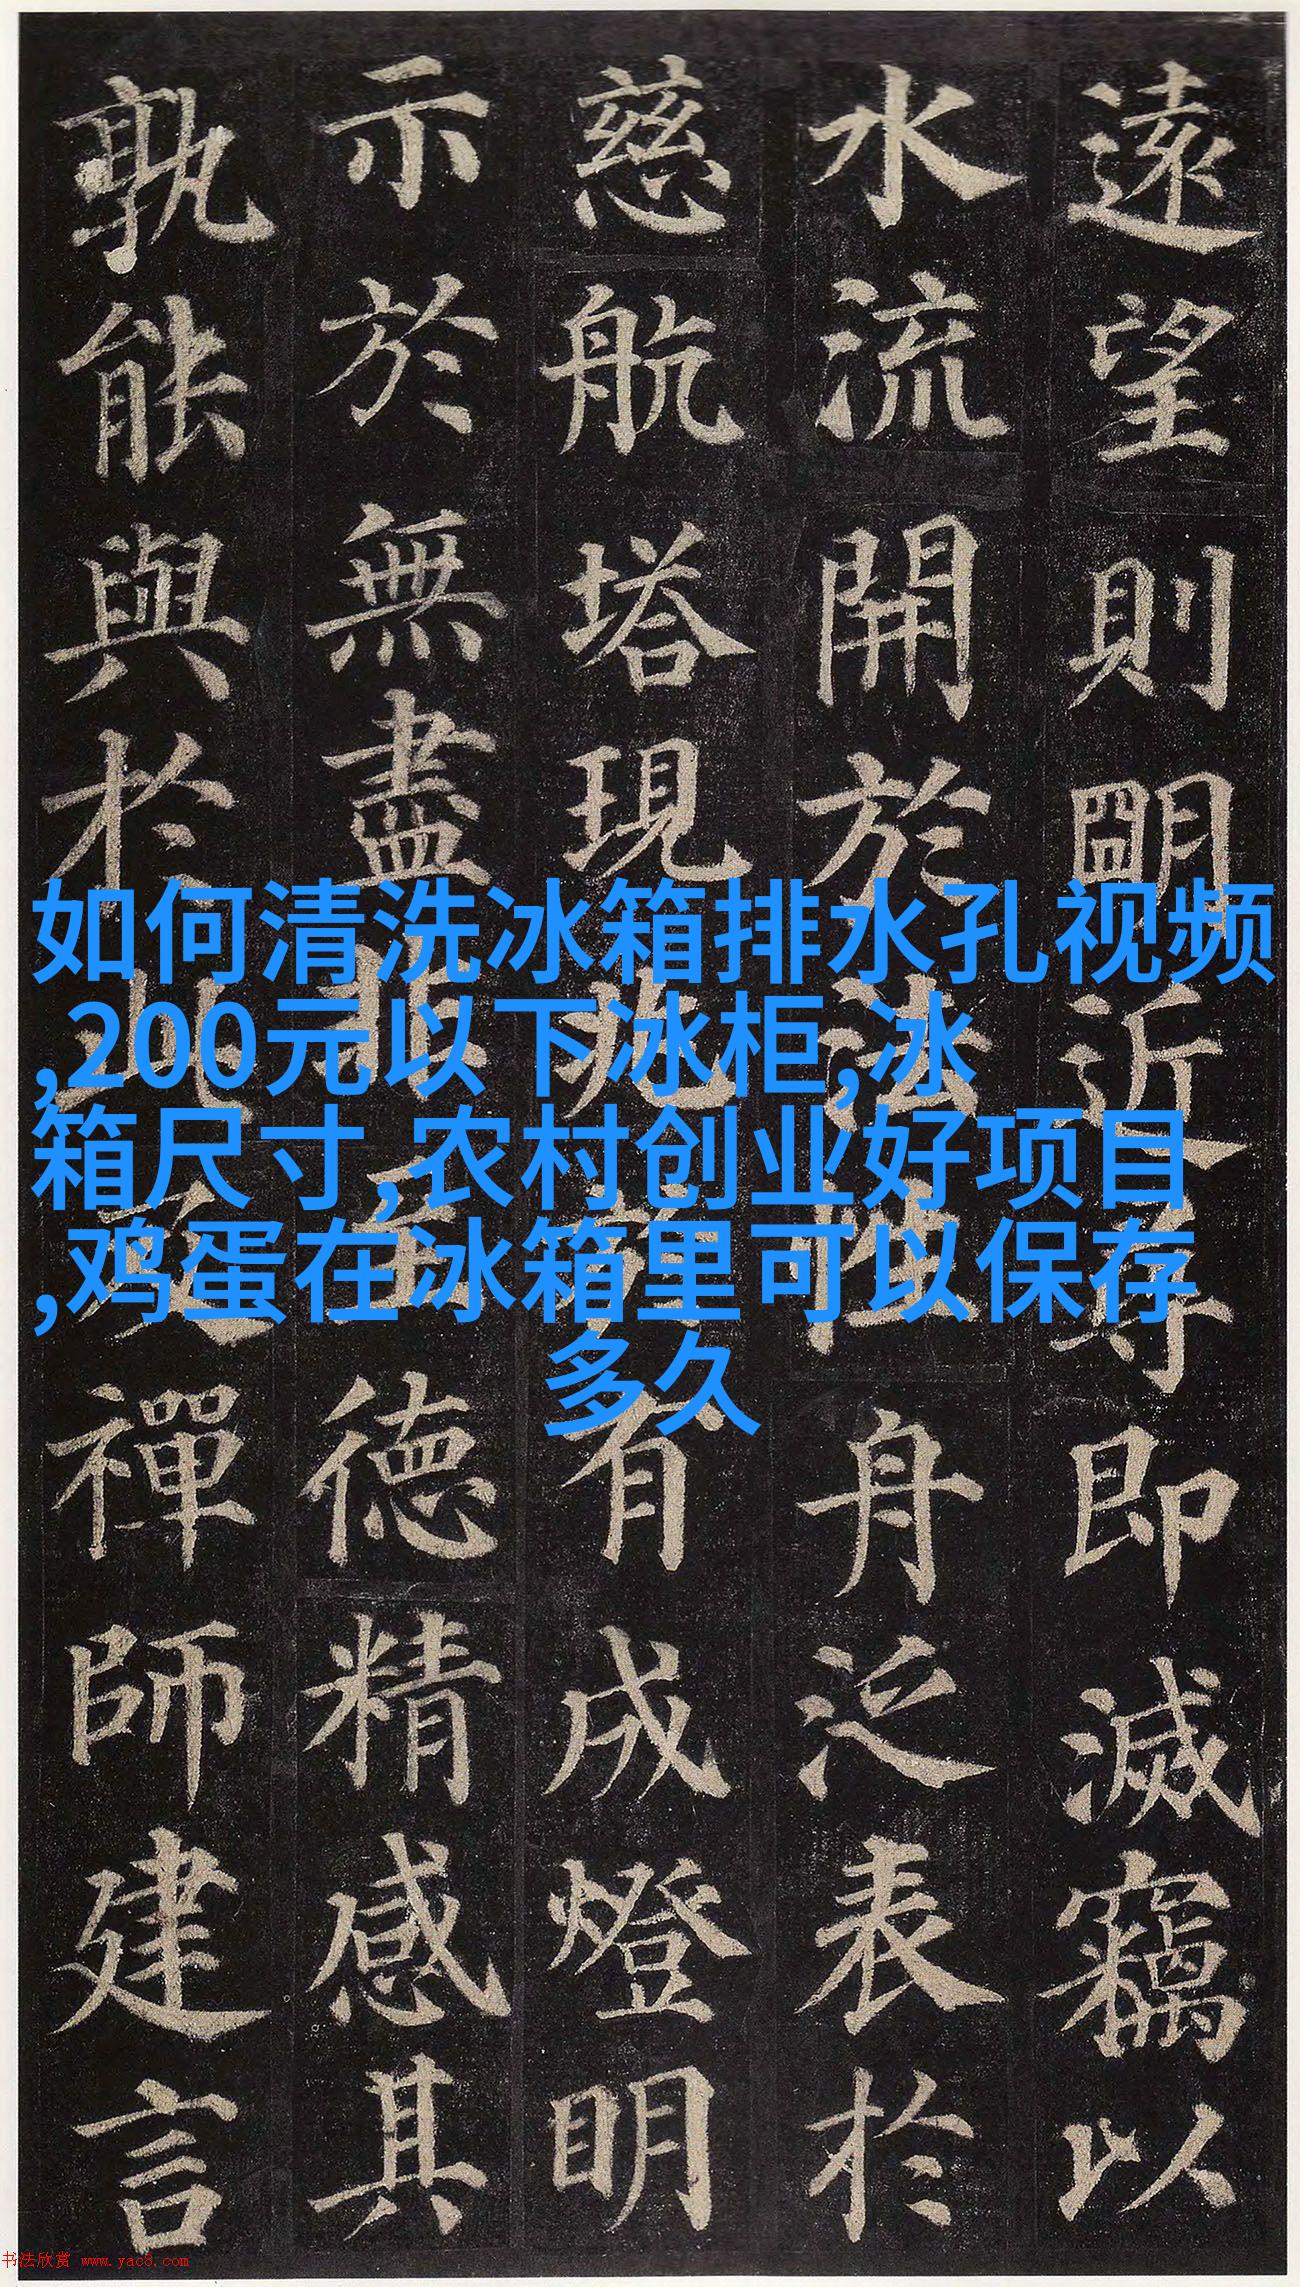 遠望則朙近尋即滅竊以
水流開於法性舟泛表於
慈航塔現兆於有成燈明
示於無盡非至德精感其
孰能與於此及禪師建言
如何清洗冰箱排水孔视频
,200元以下冰柜,冰
箱尺寸,农村创业好项目
,鸡蛋在冰箱里可以保存
多久
书法欣赏 www.yac8.com